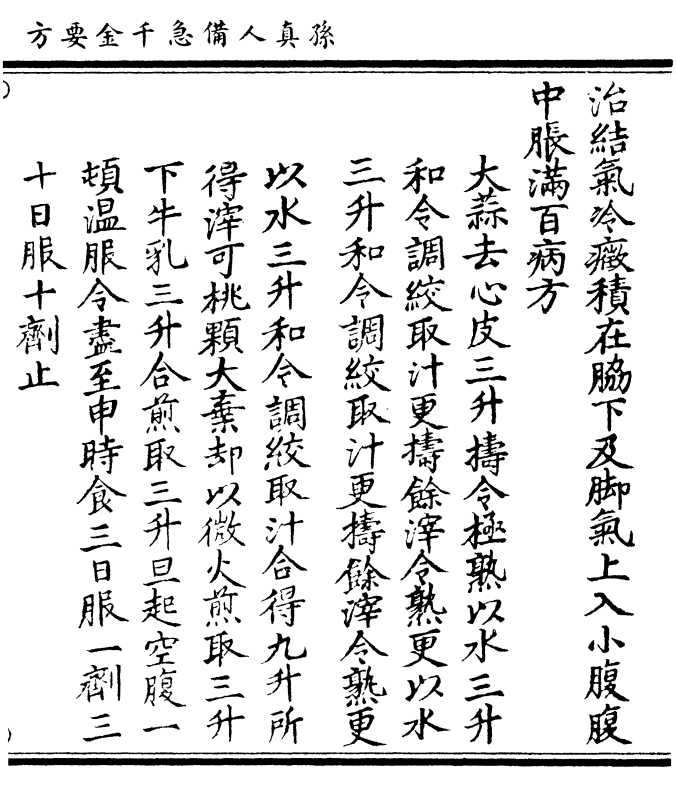 孫真人備急千金要方
治結氣冷癥積在脇下及脚氣上入小腹腹
中脹滿百病方
大蒜去心皮三升擣令極熟以水三升
和令調絞取汁更擣餘滓令熟更以水
三升和令調絞取汁更擣餘滓令熟更
以水三升和令調絞取汁合得九升所
得滓可桃顆大棄却以微火煎取三升
下牛乳三升合煎取三升旦起空腹一
頓温服令盡至申時食三日服一劑三
十日服十劑止